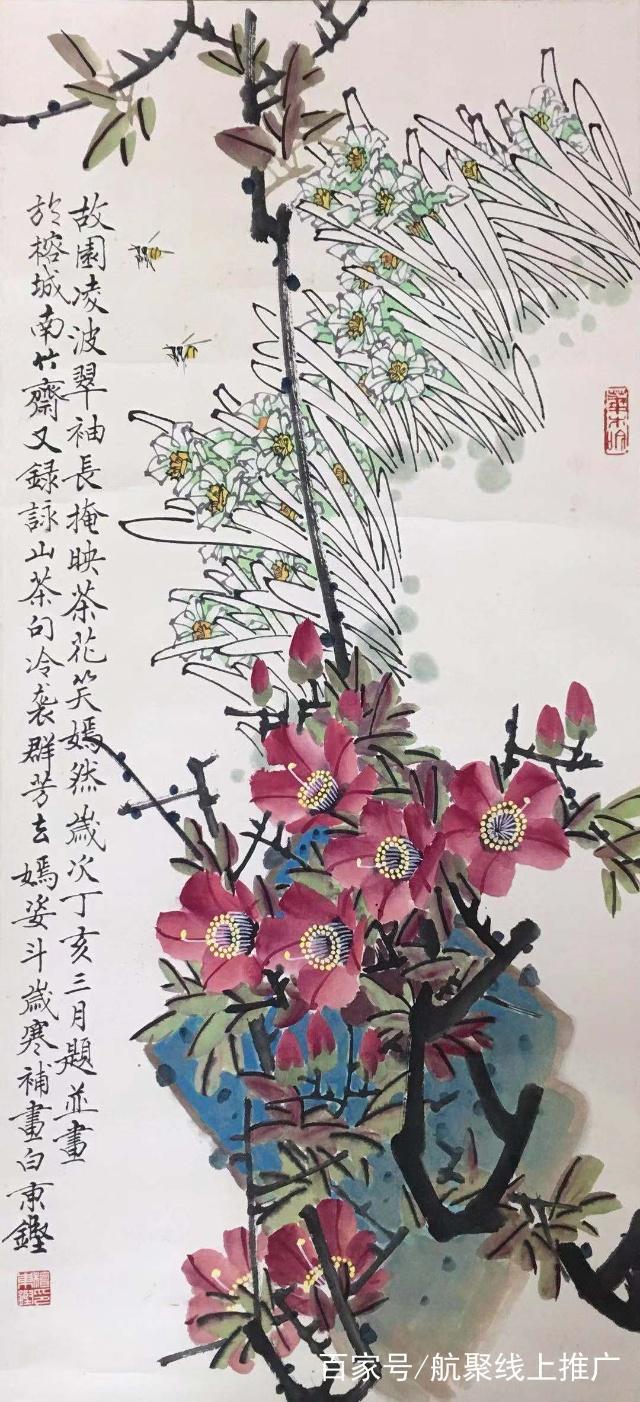 故園凌波翠袖長掩映茶花笑嫣然歲次丁亥三月題並畫
於榕城南竹齋又録詠山茶句冷襲群芳去嫣姿斗歲寒補畫白東鏗
百家号/航聚线上推广